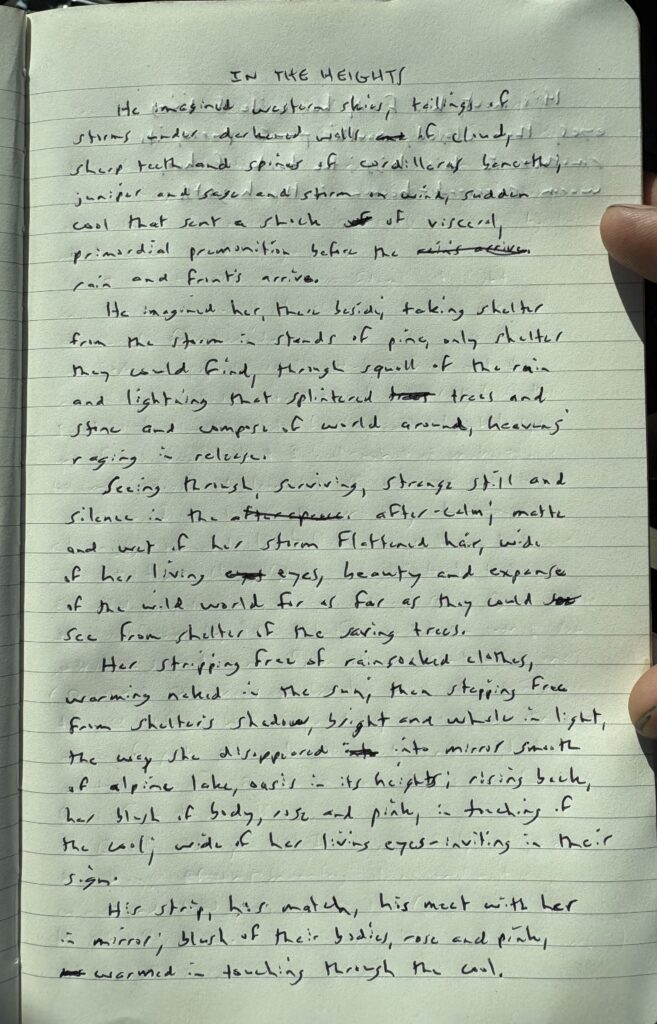 IN THE HEIGHTS
He imagined western skies, tailings of
storms under darkened walls of cloud,
sharp teeth and spines of cordilleras beneath;
juniper and sage and storm on wind, sudden
cool that sent a shock of visceral,
primordial premonition before the
rain and front's arrive.
He imagined her, there beside, taking shelter
from the storm in stands of pine, only shelter
they could find, through squall of the rain
and lightning that splintered trees and
stone and compose of world around, heavens'
raging in release.
Seeing through, surviving, strange still and
silence in the after-calm; matte
and wet of her storm flattened hair, wide
of her living eyes, beauty and expanse
of the wild world far as far as they could
see from shelter of the saving trees.
Her stripping free of rainsoaked clothes,
warming naked in the sun; then stepping free
from shelter's shadow, bright and whole in light,
the way she disappeared into mirror smooth
of alpine lake, oasis in its heights; rising back,
her blush of body, rose and pink, in touching of
the cool; wide of her living eyes-inviting in their
sign.
His strip, his match, his meet with her
in mirror; blush of their bodies, rose and pink,
warmed in touching through the cool.